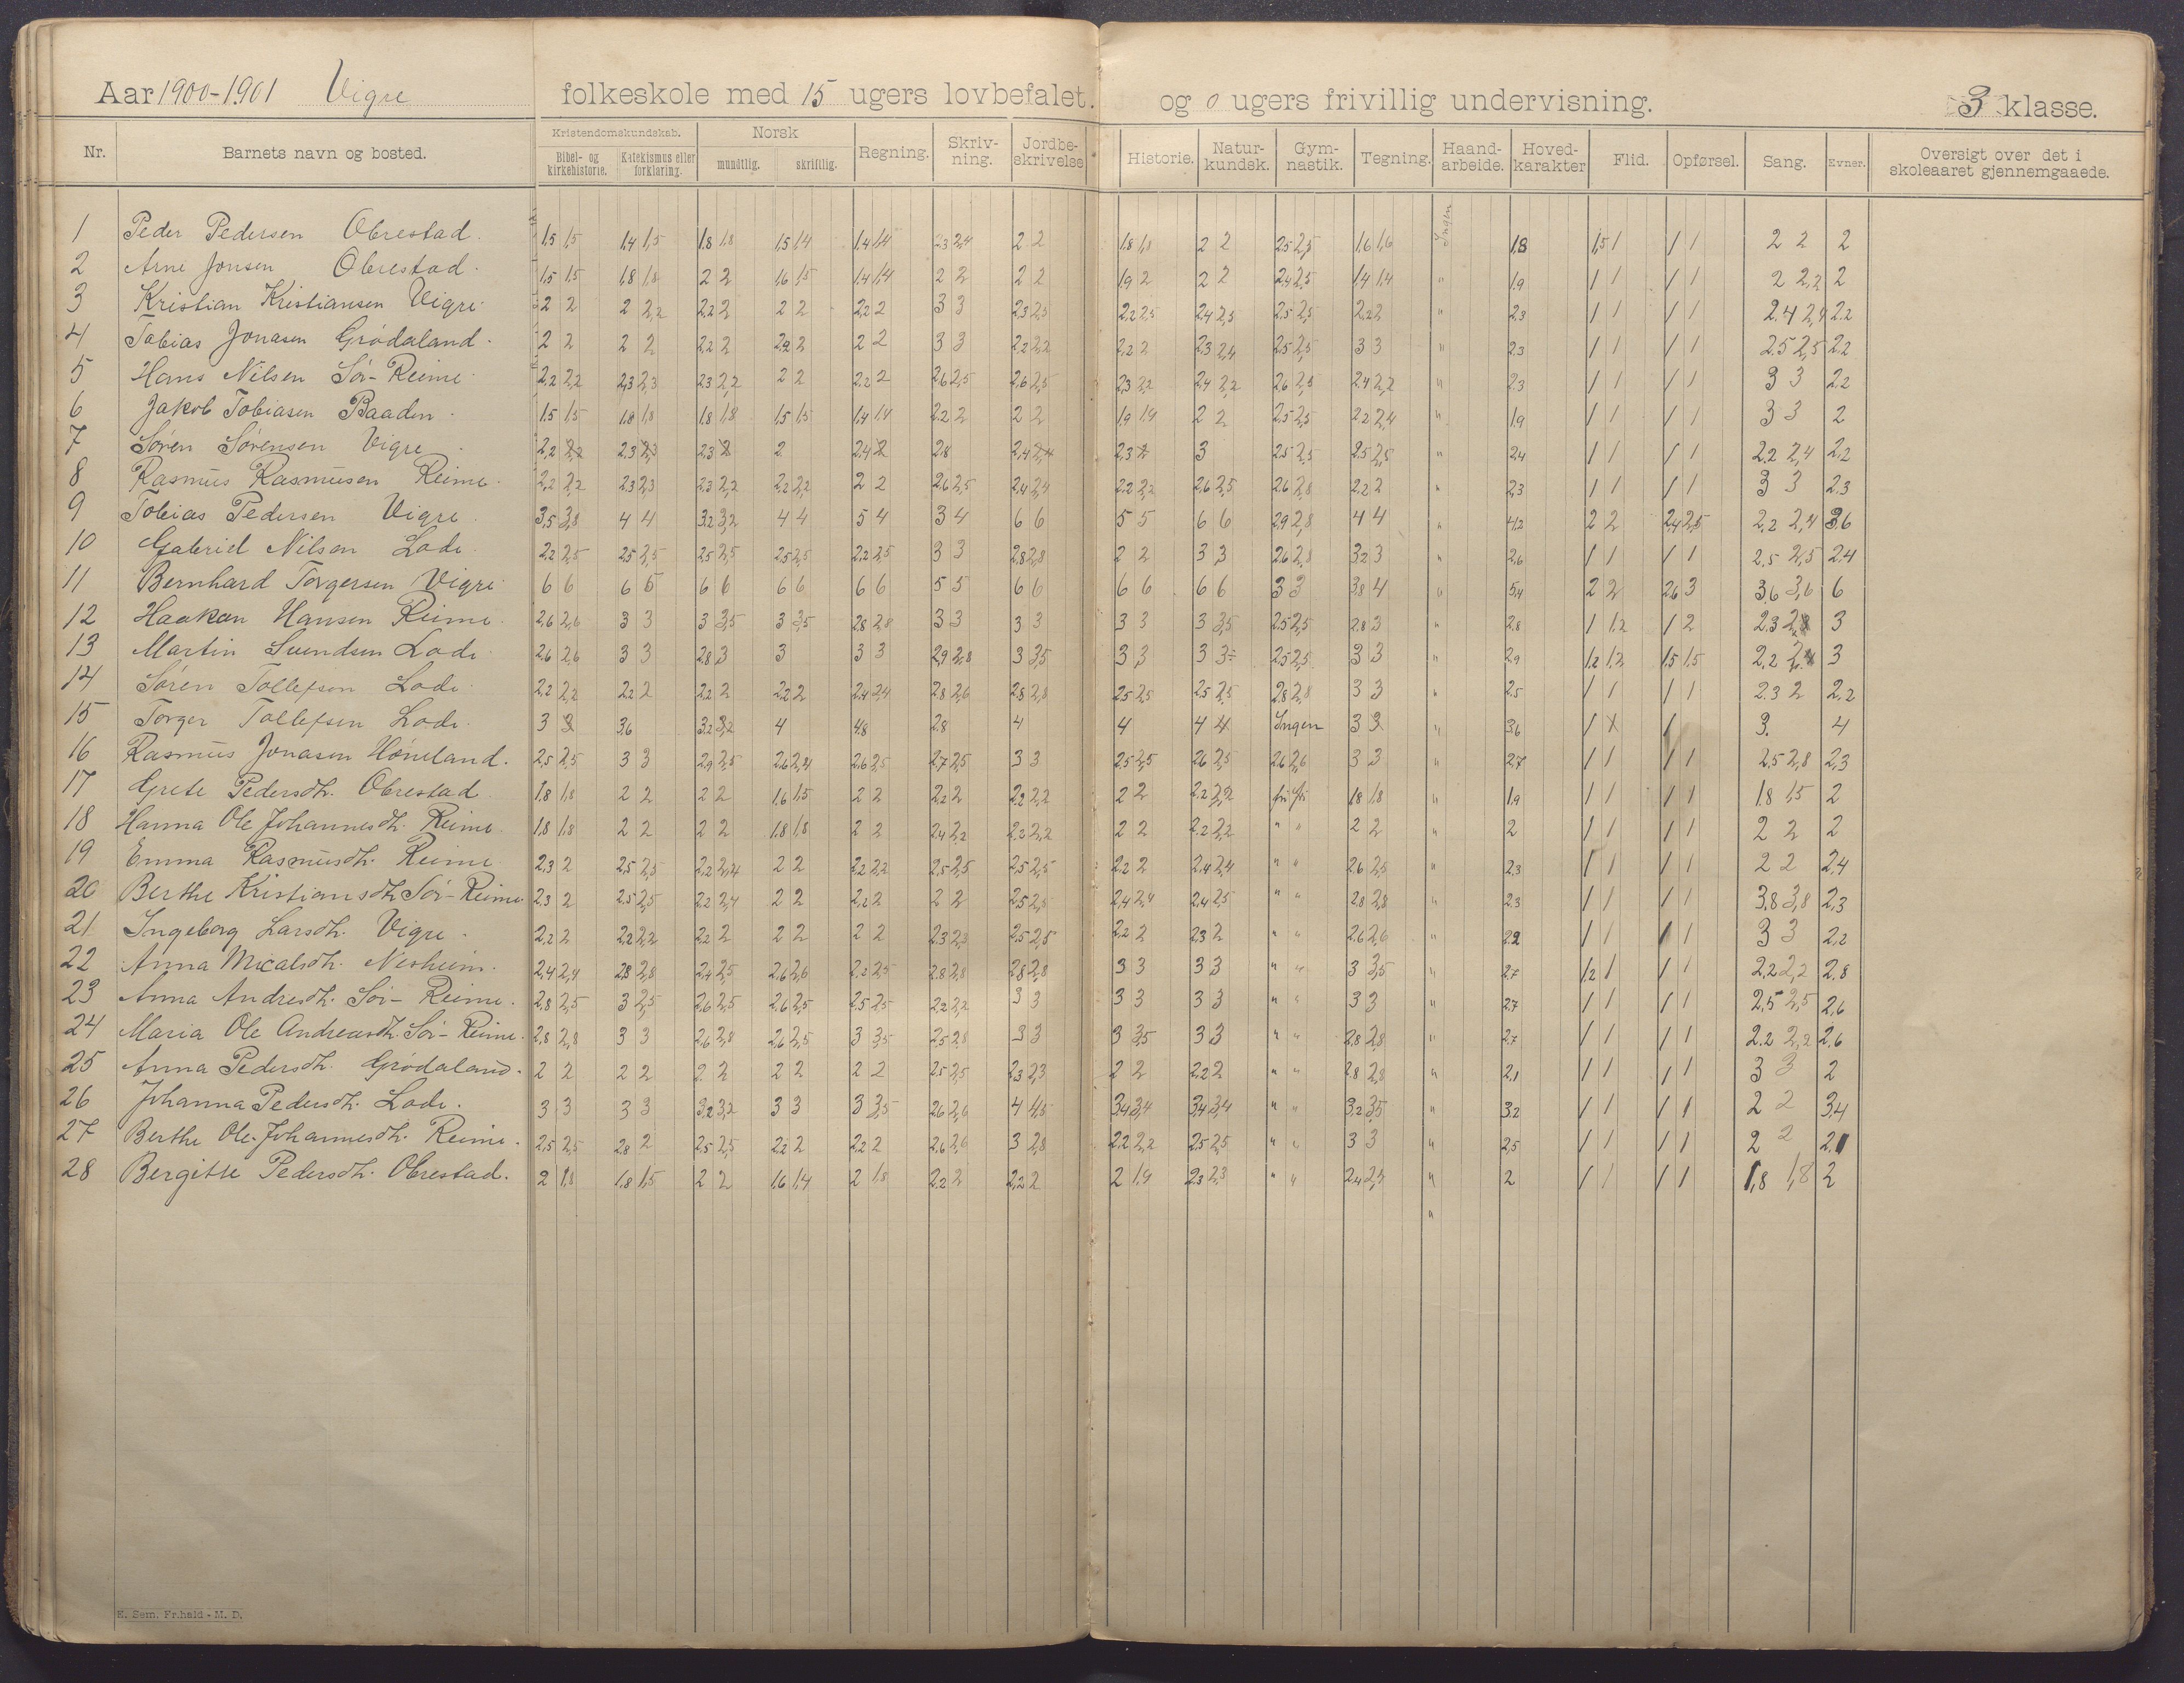 Aar 1900-1901 Vigre folkeskole med 15 ugers lovbefalet og 0 ugers frivillig undervisning. 3 klasse.
Nr. Barnets navn og bosted. Kristendomskundskab. Bibel- og kirkehistorie. Katekismus eller forklaring. Norsk mundtlig. skriftlig. Regning. Skriv-ning. Jordbe-skrivelse Historie. Natur-kundsk. Gym-nastik. Tegning. Haand-arbeide. Hoved-karakter Flid. Opførsel. Sang. Evner. Oversigt over det i skoleaaret gjennemgaaede.
1 Peder Pedersen Obrestad. 1,5 1,5 1,4 1,5 1,8 1,8 1,5 1,4 1,4 1,4 2,3 2,4 2 2 1,8 1,8 2 2 2,5 2,5 1,6 1,6 Ingen 1,8 1,5 1 1 1 2 2 2
2 Arne Jonsen Obrestad. 1,5 1,5 1,8 1,8 2 2 1,6 1,5 1,4 1,4 2 2 2 2 1,9 2 2 2 2,4 2,5 1,4 1,4 " 1,9 1 1 1 1 2 2,2 2
3 Kristian Kristiansen Vigre. 2 2 2 2,2 2,2 2 2 2 2,2 2 3 3 2,3 2,3 2,2 2,5 2,4 2,5 2,5 2,5 2,2 2 " 2,3 1 1 1 1 2,4 2,4 2,2
4 Tobias Jonasen Grødaland. 2 2 2 2 2,2 2 2,2 2 2 2 3 3 2,2 2,2 2,2 2 2,3 2,4 2,5 2,5 3 3 " 2,3 1 1 1 1 2,5 2,5 2,2
5 Hans Nilsen Sør-Reime. 2,2 2,2 2,3 2,3 2,3 2,2 2 2 2,2 2 2,6 2,5 2,6 2,5 2,3 2,2 2,4 2,2 2,6 2,5 2,4 2,2 " 2,3 1 1 1 1 3 3 2,2
6 Jakob Tobiasen Baaden. 1,5 1,5 1,8 1,8 1,8 1,8 1,5 1,5 1,4 1,4 2,2 2 2 2 1,9 1,9 2 2 2,5 2,5 2,2 2,4 " 1,9 1 1 1 1 3 3 2
7 Søren Sørensen Vigre. 2,2 2,2 2,3 2,3 2,3 2 2 2,4 2 2,8 2,4 2,4 2,3 2 3 2,5 2,5 2,5 2,5 " 2,4 1 1 1 1 2,2 2,4 2,2
8 Rasmus Rasmusen Reime. 2,2 2,2 2,3 2,3 2,3 2,2 2,2 2,2 2 2 2,6 2,5 2,4 2,4 2,2 2,2 2,6 2,5 2,6 2,8 2,2 2 " 2,3 1 1 1 1 3 3 2,3
9 Tobias Pedersen Vigre. 3,5 3,8 4 4 3,2 3,2 4 4 5 4 3 4 6 6 5 5 6 6 2,9 2,8 4 4 " 4,2 2 2 2,4 2,5 2,2 2,4 3,6
10 Gabriel Nilsen Lode. 2,2 2,5 2,5 2,5 2,5 2,5 2,5 2,5 2,2 2,5 3 3 2,8 2,8 2 2 3 3 2,6 2,8 3,2 3 " 2,6 1 1 1 1 2,5 2,5 2,4
11 Bernhard Torgersen Vigre 6 6 6 6 6 6 6 6 6 6 5 5 6 6 6 6 6 6 3 3 3,8 4 " 5,4 2 2 2,6 3 3,6 3,6 6
12 Haakon Hansen Reime. 2,6 2,6 3 3 3 3,5 3 3,5 2,8 2,8 3 3 3 3 3 3 3 3,5 2,5 2,5 2,8 3 " 2,8 1 1,2 1 2 2,3 3
13 Martin Svendsen Lode 2,6 2,6 3 3 2,8 3 3 3 3 2,9 2,8 3 3,5 3 3 3 3 2,5 2,5 3 3 " 2,9 1,2 1,2 1,5 1,5 2,2 3
14 Søren Tollefsen Lode. 2,2 2,2 2,2 2 2,2 2 2,2 2 2,4 2,4 2,8 2,6 2,8 2,8 2,5 2,5 2,5 2,5 2,8 2,8 3 3 " 2,5 1 1 1 1 2,3 2 2,2
15 Torger Tollefsen Lode. 3 3 3,6 3,2 3,2 4 4,8 2,8 4 4 4 4 Ingen 3 3 " 3,6 1 1 1 3. 4
16 Rasmus Jonasen Høneland. 2,5 2,5 3 3 2,9 2,5 2,6 2,4 2,6 2,5 2,7 2,5 3 3 2,5 2,5 2,6 2,5 2,6 2,6 3 3 " 2,7 1 1 1 1 2,5 2,8 2,3
17 Grete Pedersdtr. Obrestad 1,8 1,8 2 2 2 2 1,6 1,5 2 2 2,2 2 2,2 2,2 2 2 2,2 2,2 fri fri 1,8 1,8 " 1,9 1 1 1 1 1,8 1,5 2
18 Hanna Ole Johannesdtr. Reime. 1,8 1,8 2 2 2 2 1,8 1,8 2 2 2,4 2,2 2,2 2,2 2 2 2,2 2,2 " " 2 2 " 2 1 1 1 1 2 2 2
19 Emma Rasmusdtr. Reime 2,3 2 2,5 2,5 2,2 2,4 2 2 2,2 2,2 2,5 2,5 2,5 2,5 2,2 2 2,4 2,4 " " 2,6 2,5 " 2,3 1 1 1 1 2 2 2,4
20 Berthe Kristiansdtr. Sør-Reime. 2,3 2 2,5 2,5 2,2 2,4 2 2 2,2 2 2 2 2,5 2,5 2,4 2,4 2,4 2,5 " " 2,8 2,8 " 2,3 1 1 1 1 3,8 3,8 2,3
21 Ingeborg Larsdtr. Vigre. 2,2 2 2,2 2,2 2,2 2 2 2 2 2 2,3 2,3 2,5 2,5 2,2 2 2,3 2 " " 2,6 2,6 " 2,2 1 1 1 1 3 3 2,2
22 Anna Micalsdtr. Nesheim. 2,4 2,4 2,8 2,8 2,4 2,5 2,6 2,6 2,2 2,5 2,8 2,8 2,8 2,8 3 3 3 3 " " 3 3,5 " 2,7 1,2 1 1 1 2,2 2,2 2,8
23 Anna Andresdtr. Sør-Reime. 2,8 2,5 3 2,5 2,6 2,5 2,6 2,5 2,5 2,5 2,2 2,2 3 3 3 3 3 3 " " 3 3 " 2,7 1 1 1 1 2,5 2,5 2,6
24 Maria Ole Andreasdtr. Sør-Reime. 2,8 2,8 3 3 2,6 2,8 2,6 2,5 3 3,5 2,5 2,8 3 3 3 3,5 3 3 " " 2,8 2,8 " 2,7 1 1 1 1 2,2 2,2 2,6
25 Anna Pedersdtr. Grødaland. 2 2 2 2 2 2 2 2 2 2 2,5 2,5 2,3 2,3 2 2 2,2 2 " " 2,8 2,8 " 2,1 1 1 1 1 3 3 2
26 Johanna Pedersdtr. Lode. 3 3 3 3 3,2 3,2 3 3 3 3,5 2,6 2,6 4 4,5 3,4 3,4 3,4 3,4 " " 3,2 3,5 " 3,2 1 1 1 1 2 2 3,4
27 Berthe Ole-Johannesdtr. Reime. 2,5 2,5 2,8 2 2,5 2,5 2,2 2 2,2 2 2,6 2,6 3 2,8 2,2 2,2 2,5 2,5 " " 3 3 " 2,5 1 1 1 1 2 2 2,1
28 Bergitte Pedersdtr. Obrestad. 2 1,8 1,8 1,5 2 2 1,6 1,4 2 1,8 2,2 2 2,2 2 2 1,9 2,3 2,3 " " 2,4 2,4 " 2 1 1 1 1 1,8 1,8 2
"
K. Sem. Fr.hald - M. D.